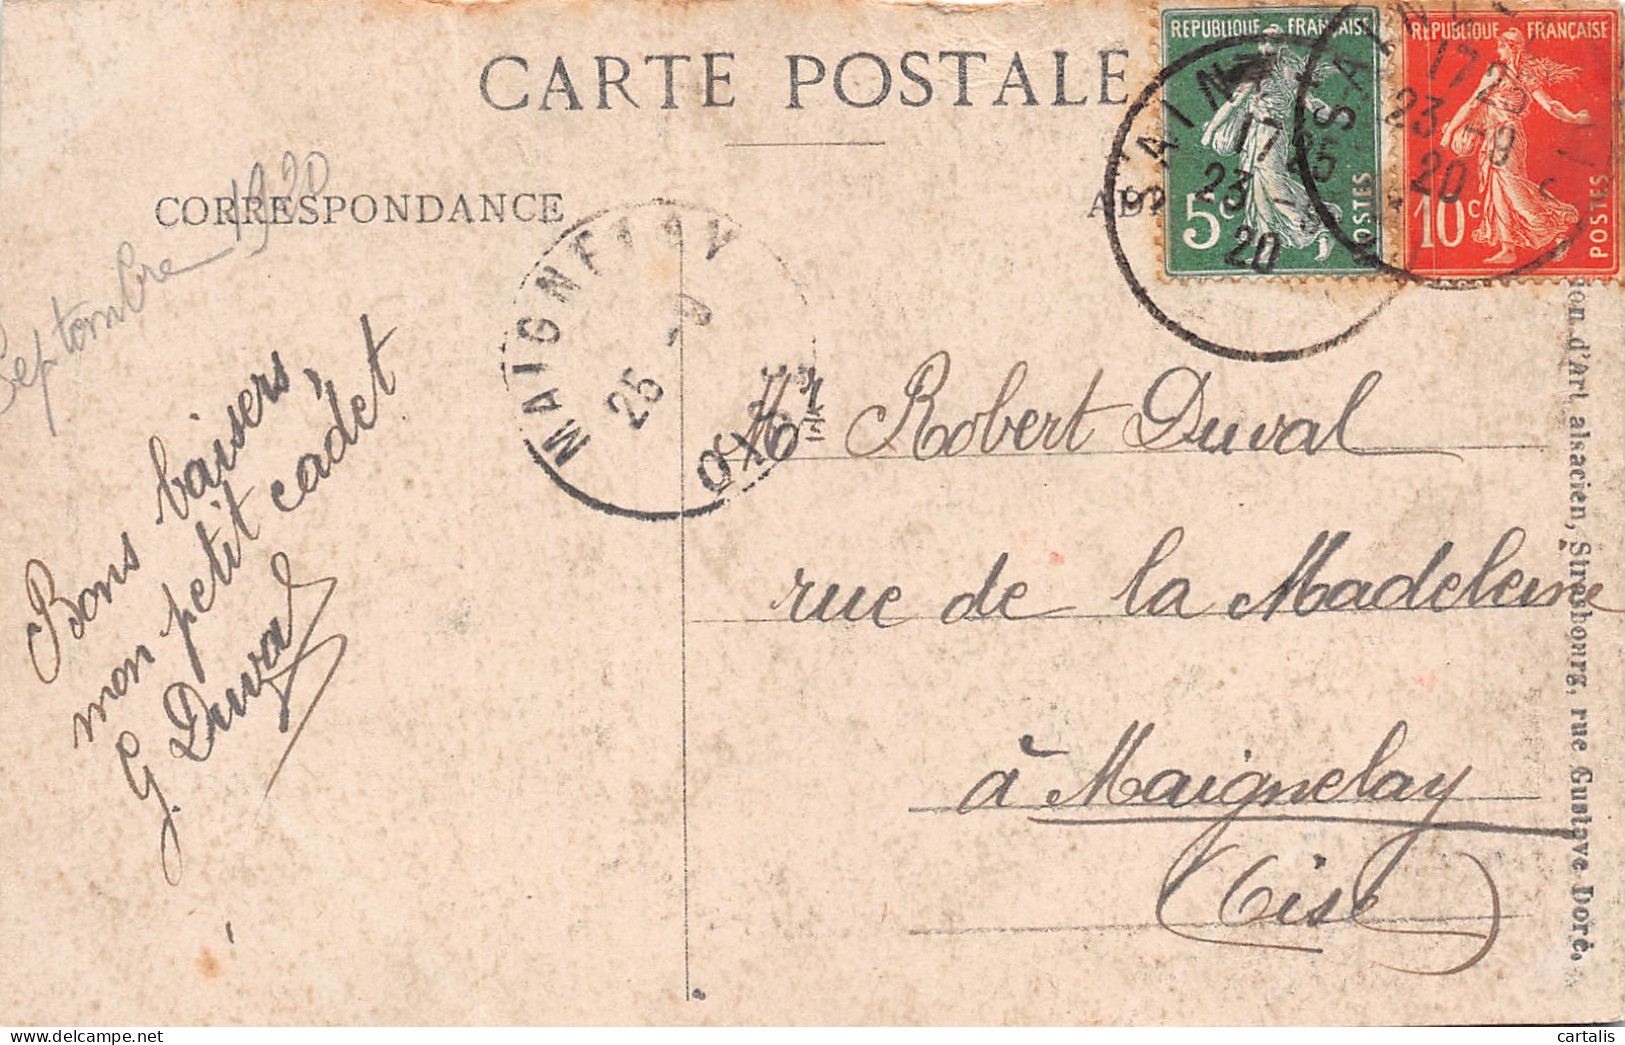 CARTE POSTALE
CORRESPONDANCE
Septembre 1920
Bons baisers
mon petit cadet
G. Duval
MAIGNELAY
25 -9
OISE
REPUBLIQUE FRANÇAISE
5c
POSTES
REPUBLIQUE FRANÇAISE
10c
POSTES
SAINT
17 25
23
20
SA
17 25
23 -9
20
Robert Duval
rue de la Madeleine
à Maignelay
(Oise)
d'Art alsacien, Strasbourg, rue Gustave Doré.
cartalis